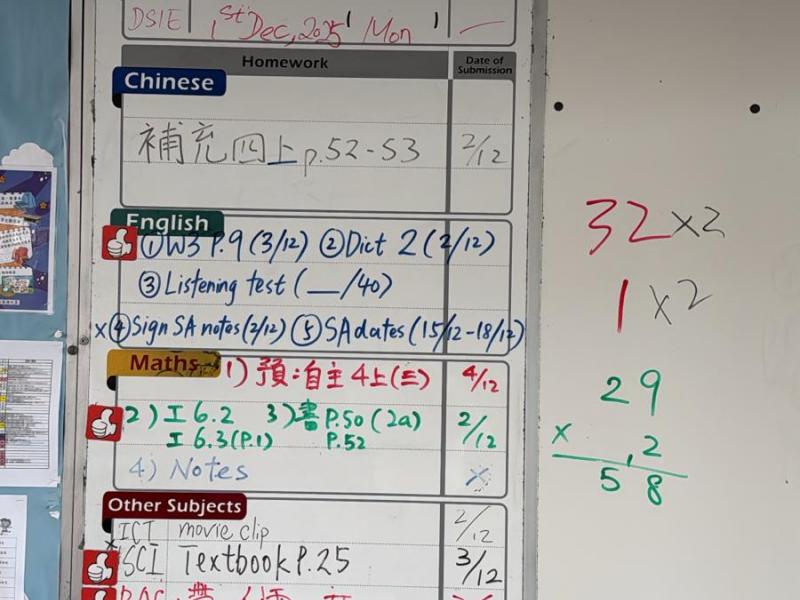 DSIE 1st Dec, 2025 Mon —
Homework Date of Submission
Chinese
補充四上 p.52-53 2/12
English
① W3 P.9 (3/12) ② Dict 2 (2/12)
③ Listening test ( __/40)
x ④ Sign SA notes (2/12) ⑤ SA dates (15/12-18/12)
Maths 1) 預:自主4上(三) 4/12
2) 工 6.2 3) 書 P.50 (2a) 2/12
工 6.3 (P.1) P.52
4) Notes x
Other Subjects
ICT movie clip 2/12
SCI Textbook P.25 3/12
32 x2
1 x2
29
x 2
58